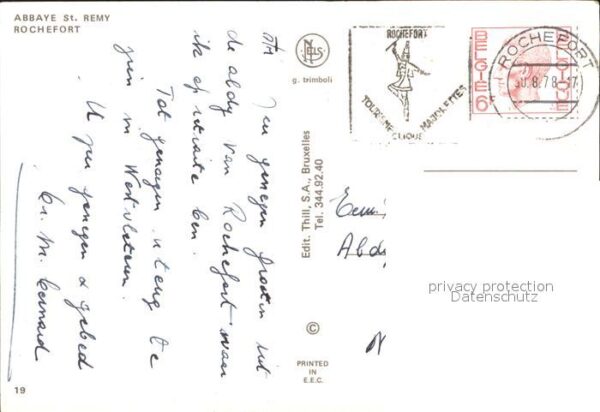 ABBAYE St. REMY
ROCHEFORT
genegen groeten uit
de abdij van Rochefort waar
ik op retraite ben.
Tot genoegen u terug te
zien in Westvleteren.
U zeer genegen & gebed
br. M. Bernard
19
NELS
g. trimboli
Edit. Thill, S.A., Bruxelles
Tel. 344.92.40
©
PRINTED
IN
E.E.C.
ROCHEFORT
CLIQUE
MAJORETTES
BELGIE 6
BELGIQUE
ROCHEFORT
8.78
Abdij
privacy protection
Datenschutz